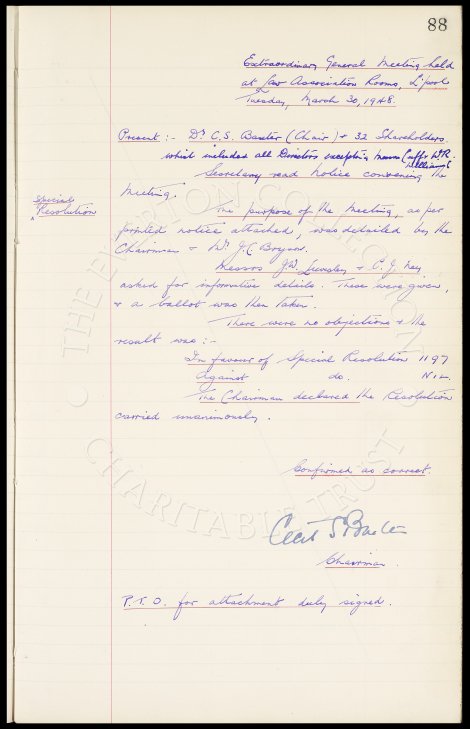 88
Extraordinary General Meeting held
at Law Association Rooms, L'pool
Tuesday, March 30, 1948.
Present :- Dr C.S. Baxter (Chair) + 32 Shareholders
which included all Directors excepting Messrs Cuff + W.R. Williams
Secretary read Notice convening the
Meeting.
Special
Resolution
The purpose of the Meeting, as per
printed notice attached, was detailed by the
Chairman & Mr J.C. Bryson.
Messrs J.W. & C.J. Ney
asked for informative details. These were given,
& a ballot was then taken.
There were no objections & the
result was :-
In favour of Special Resolution 1197
Against do. Nil
The Chairman declared the Resolution
carried unanimously.
Confirmed as correct.
Cecil S Baxter
Chairman.
P.T.O. for attachment duly signed.
THE EVERTON COLLECTION
CHARITABLE TRUST